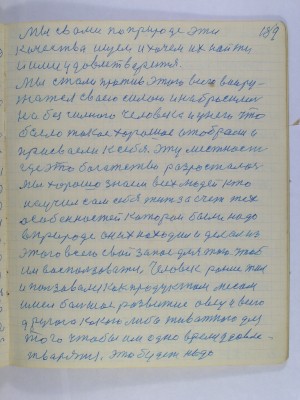 189
Мы с вами по природе эти
качества ищем и хочем их найти
и ими удовлетворятся.
Мы стали против этого всего воору-
жатся своею силою и набросились
на безсильного человека и у него что
было такое хорошее отобрали и
присвоили к себе. Эту местность
где это богатство разросталось
Мы хорошо знаем всех людей кто
научил сам себя
особенностей которые были надо
в природе они их находили и делали из
этого всего свой запас для того чтоб
им воспользоватся. Человек
и пользовался как продуктом мясом
имел большое развитие овец и всего
другого какого либо животного для
того чтобы им одно время удовле-
творятся. Это будет надо